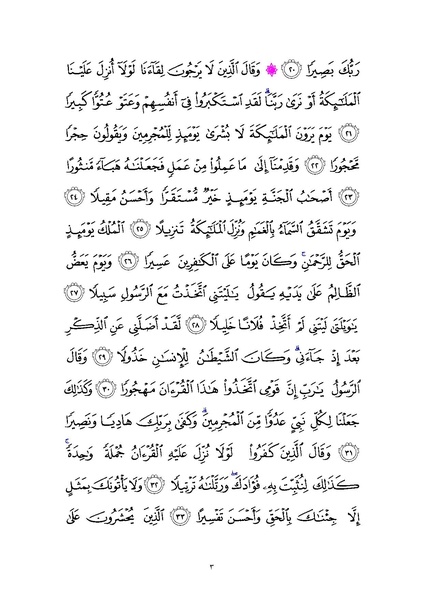 رَبُّكَ بَصِيرًا ٢٠ ۞ وَقَالَ ٱلَّذِينَ لَا يَرْجُونَ لِقَآءَنَا لَوْلَآ أُنزِلَ عَلَيْنَا
ٱلْمَلَٰٓئِكَةُ أَوْ نَرَىٰ رَبَّنَا ۗ لَقَدِ ٱسْتَكْبَرُوا۟ فِىٓ أَنفُسِهِمْ وَعَتَوْ عُتُوًّا كَبِيرًا
٢١ يَوْمَ يَرَوْنَ ٱلْمَلَٰٓئِكَةَ لَا بُشْرَىٰ يَوْمَئِذٍ لِّلْمُجْرِمِينَ وَيَقُولُونَ حِجْرًا
مَّحْجُورًا ٢٢ وَقَدِمْنَآ إِلَىٰ مَا عَمِلُوا۟ مِنْ عَمَلٍ فَجَعَلْنَٰهُ هَبَآءً مَّنثُورًا
٢٣ أَصْحَٰبُ ٱلْجَنَّةِ يَوْمَئِذٍ خَيْرٌ مُّسْتَقَرًّا وَأَحْسَنُ مَقِيلًا ٢٤
وَيَوْمَ تَشَقَّقُ ٱلسَّمَآءُ بِٱلْغَمَٰمِ وَنُزِّلَ ٱلْمَلَٰٓئِكَةُ تَنزِيلًا ٢٥ ٱلْمُلْكُ يَوْمَئِذٍ
ٱلْحَقُّ لِلرَّحْمَٰنِ ۚ وَكَانَ يَوْمًا عَلَى ٱلْكَٰفِرِينَ عَسِيرًا ٢٦ وَيَوْمَ يَعَضُّ
ٱلظَّالِمُ عَلَىٰ يَدَيْهِ يَقُولُ يَٰلَيْتَنِى ٱتَّخَذْتُ مَعَ ٱلرَّسُولِ سَبِيلًا ٢٧
يَٰوَيْلَتَىٰ لَيْتَنِى لَمْ أَتَّخِذْ فُلَانًا خَلِيلًا ٢٨ لَّقَدْ أَضَلَّنِى عَنِ ٱلذِّكْرِ
بَعْدَ إِذْ جَآءَنِى ۗ وَكَانَ ٱلشَّيْطَٰنُ لِلْإِنسَٰنِ خَذُولًا ٢٩ وَقَالَ
ٱلرَّسُولُ يَٰرَبِّ إِنَّ قَوْمِى ٱتَّخَذُوا۟ هَٰذَا ٱلْقُرْءَانَ مَهْجُورًا ٣٠ وَكَذَٰلِكَ
جَعَلْنَا لِكُلِّ نَبِىٍّ عَدُوًّا مِّنَ ٱلْمُجْرِمِينَ ۗ وَكَفَىٰ بِرَبِّكَ هَادِيًا وَنَصِيرًا
٣١ وَقَالَ ٱلَّذِينَ كَفَرُوا۟ لَوْلَا نُزِّلَ عَلَيْهِ ٱلْقُرْءَانُ جُمْلَةً وَٰحِدَةً ۚ
كَذَٰلِكَ لِنُثَبِّتَ بِهِۦ فُؤَادَكَ ۖ وَرَتَّلْنَٰهُ تَرْتِيلًا ٣٢ وَلَا يَأْتُونَكَ بِمَثَلٍ
إِلَّا جِئْنَٰكَ بِٱلْحَقِّ وَأَحْسَنَ تَفْسِيرًا ٣٣ ٱلَّذِينَ يُحْشَرُونَ عَلَىٰ
٣